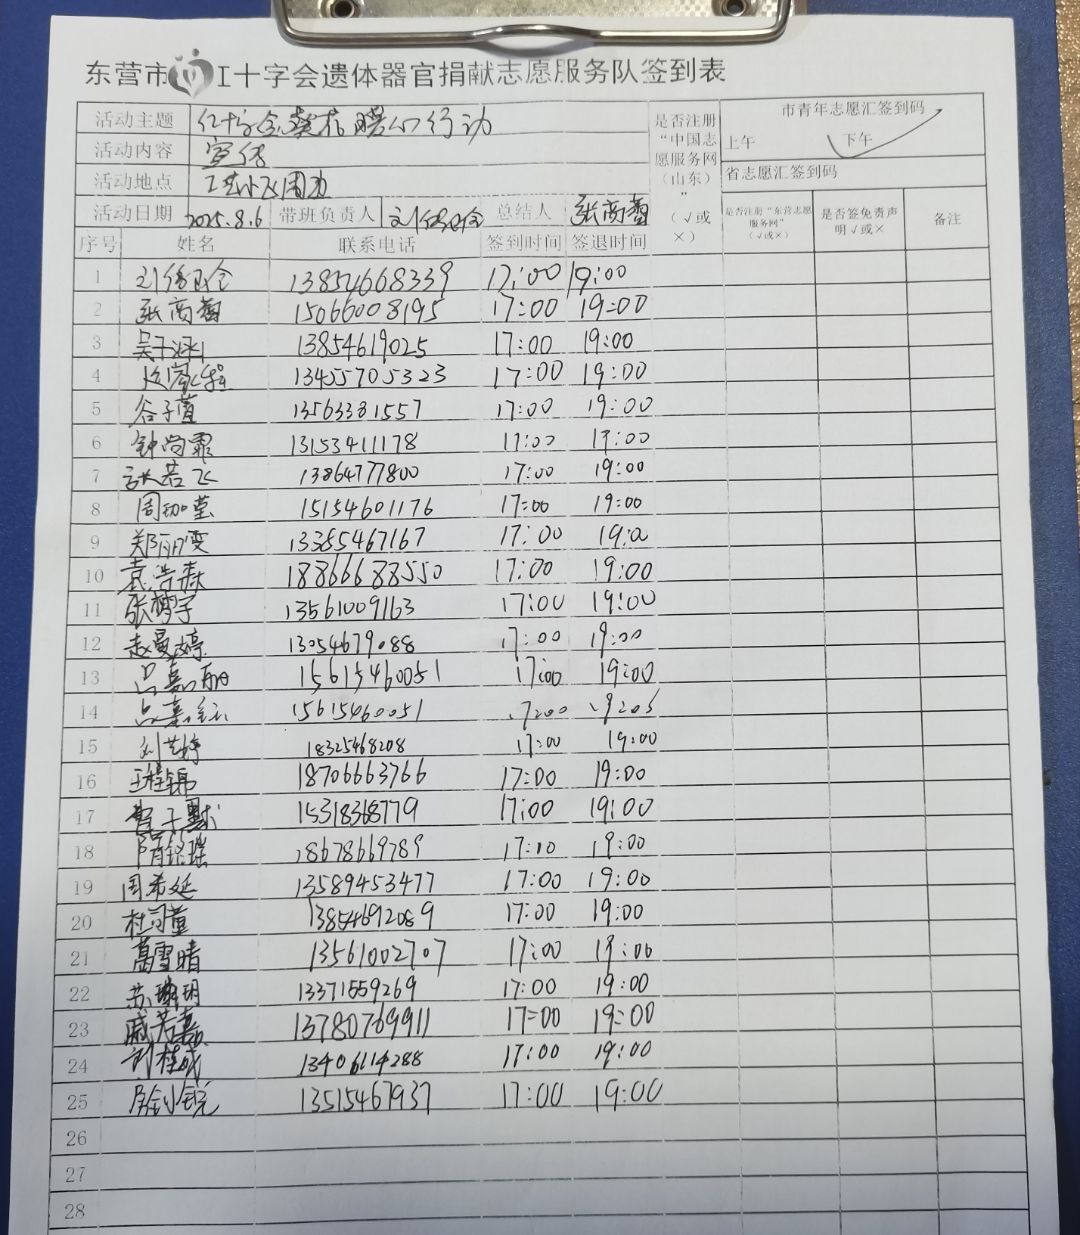 东营市 工十字会遗体器官捐献志愿服务队签到表
活动主题 红十字会葵花暖心行动 是否注册“中国志愿服务网（山东）”（√或×） 市青年志愿汇签到码
上午 下午
活动内容 宣传
活动地点 周边 省志愿汇签到码
活动日期 2025.8.6 带班负责人 总结人 张高 是否注册“东营志愿服务网”（√或×） 是否签免责声明√或× 备注
序号 姓名 联系电话 签到时间 签退时间
1 13854668339 17:00 19:00
2 张高 15066008195 17:00 19:00
3 吴子涵 13854619025 17:00 19:00
4 13455705323 17:00 19:00
5 谷子萱 13563381557 17:00 19:00
6 钟尚霏 13153411178 17:00 19:00
7 张若飞 13864777800 17:00 19:00
8 周珈莹 15154601176 17:00 19:00
9 郑丽雯 13385467167 17:00 19:00
10 袁浩森 18866688550 17:00 19:00
11 张梦宇 13561009163 17:00 19:00
12 赵曼婷 13054679088 17:00 19:00
13 吕嘉丽 15615460051 17:00 19:00
14 吕嘉 15615460051
15 刘艺婷 18325468208 17:00 19:00
16 王程锦 18706663766 17:00 19:00
17 曹子默 15318368779 17:00 19:00
18 隋铭瑶 18678669789 17:00 19:00
19 周希延 13589453477 17:00 19:00
20 杜司童 13854692089 17:00 19:00
21 葛雪晴 13561002707 17:00 19:00
22 苏 玥 13371559269 17:00 19:00
23 戚若嘉 13780769911 17:00 19:00
24 刘桂成 13406114288 17:00 19:00
25 13515467937 17:00 19:00
26
27
28